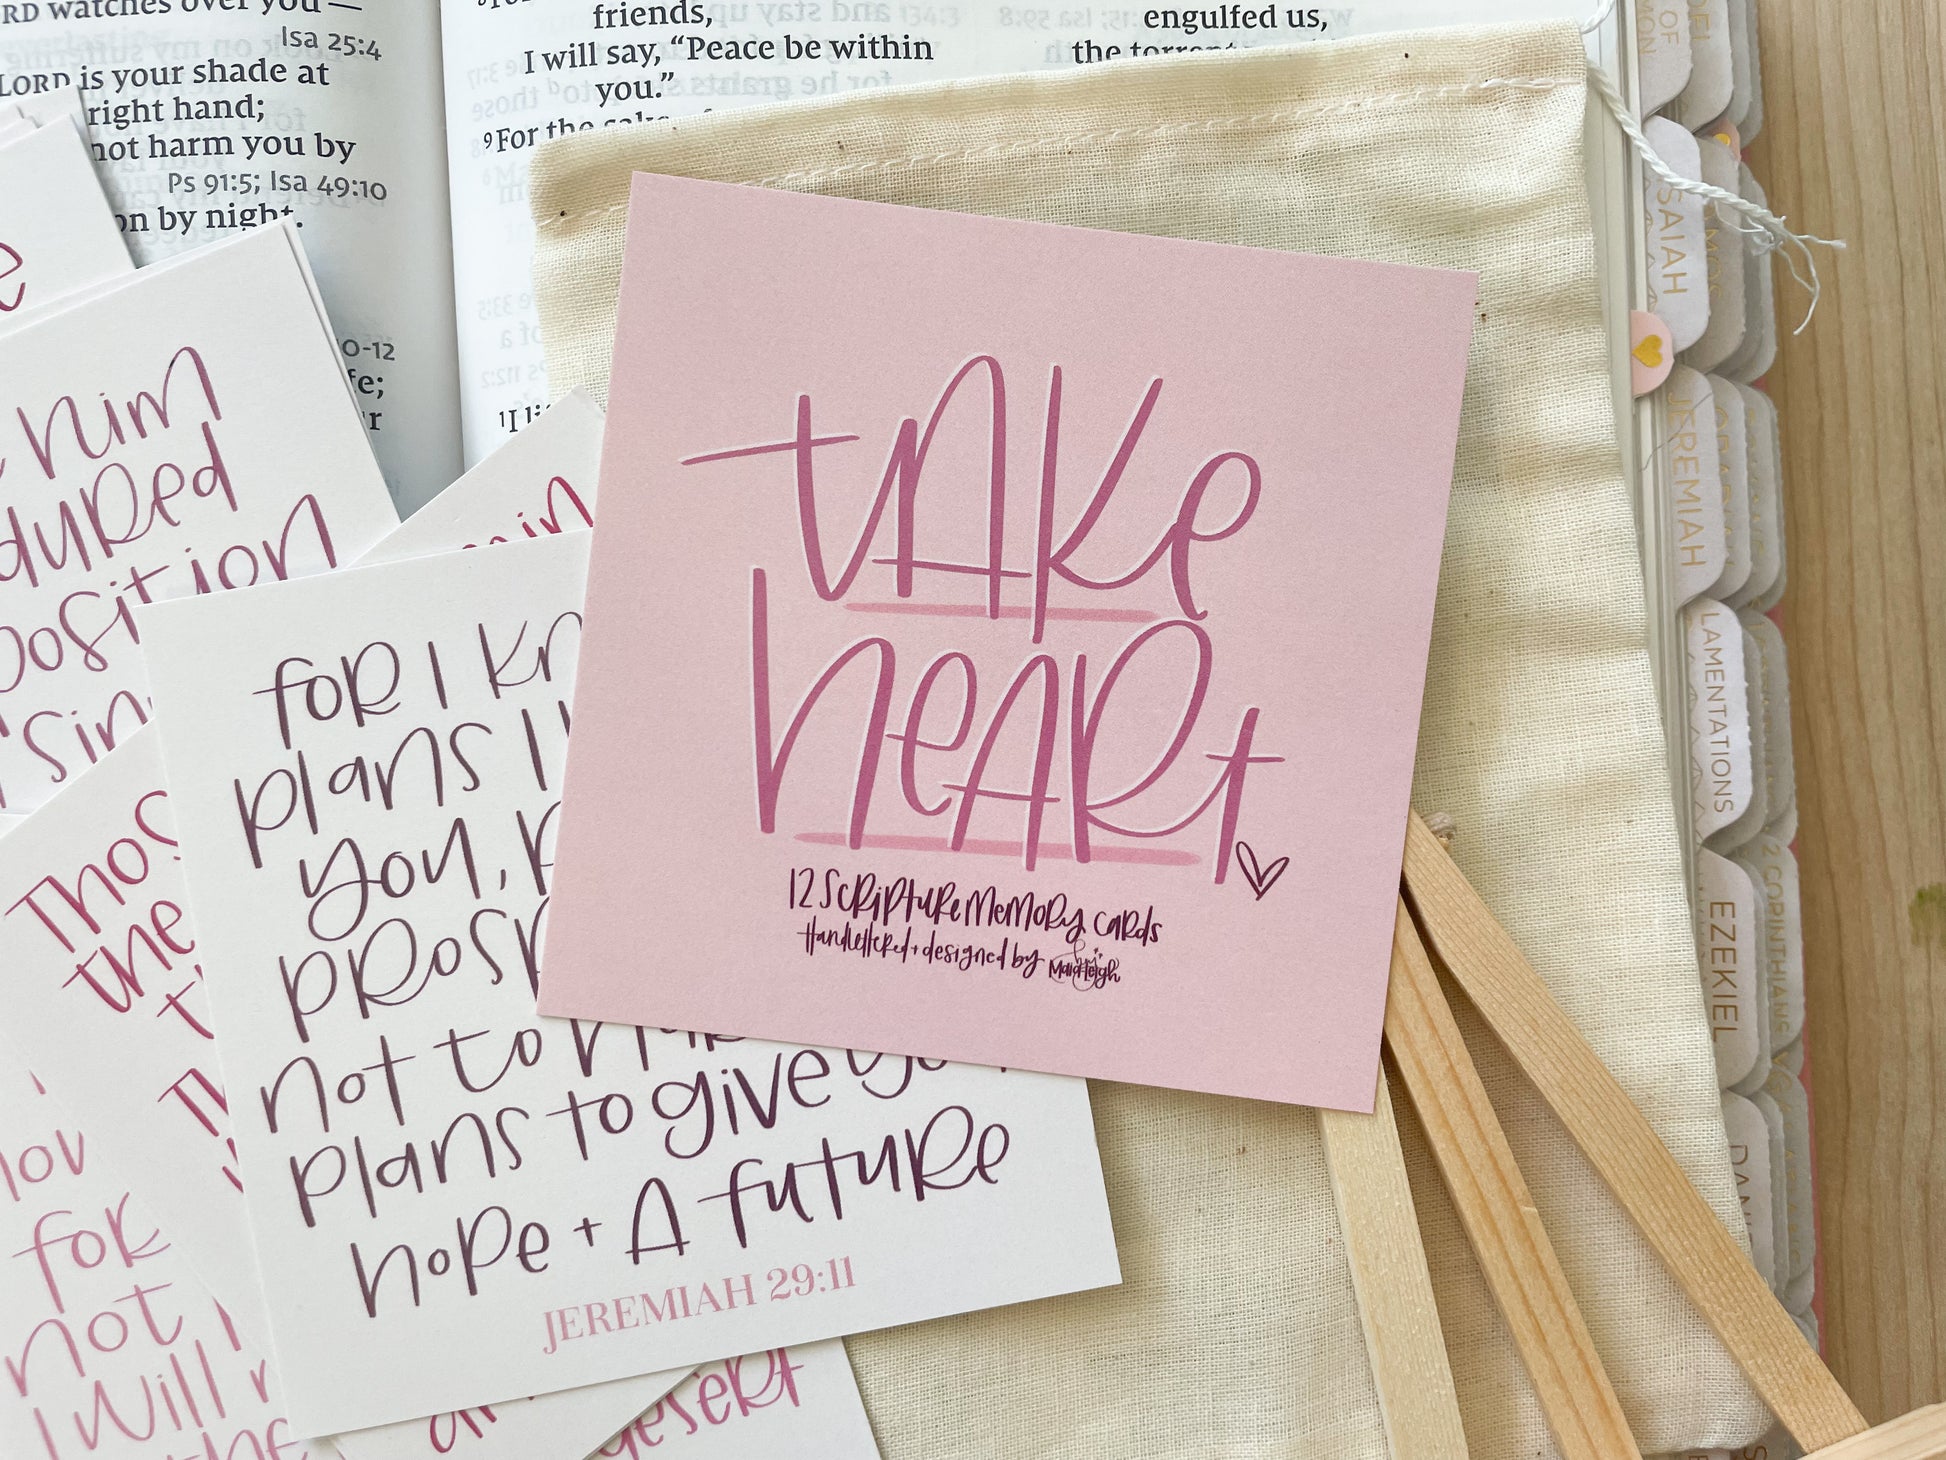 RD watches over you —
Isa 25:4
LORD is your shade at
right hand;
not harm you by
Ps 91:5; Isa 49:10
on by night.
0-12
fe;
r
friends,
I will say, “Peace be within
you.”
9 For the sake
1 I
engulfed us,
the torrent
OF
MON
ISAIAH
JEREMIAH
LAMENTATIONS
EZEKIEL
2 CORINTHIANS
AMOS
take
heart
12 Scripture memory cards
Handlettered + designed by
for I kn
plans I
you,
prosp
not to
plans to give you
hope + a future
JEREMIAH 29:11
him
dured
position
sin
Thos
the
for
not
I will
the
desert